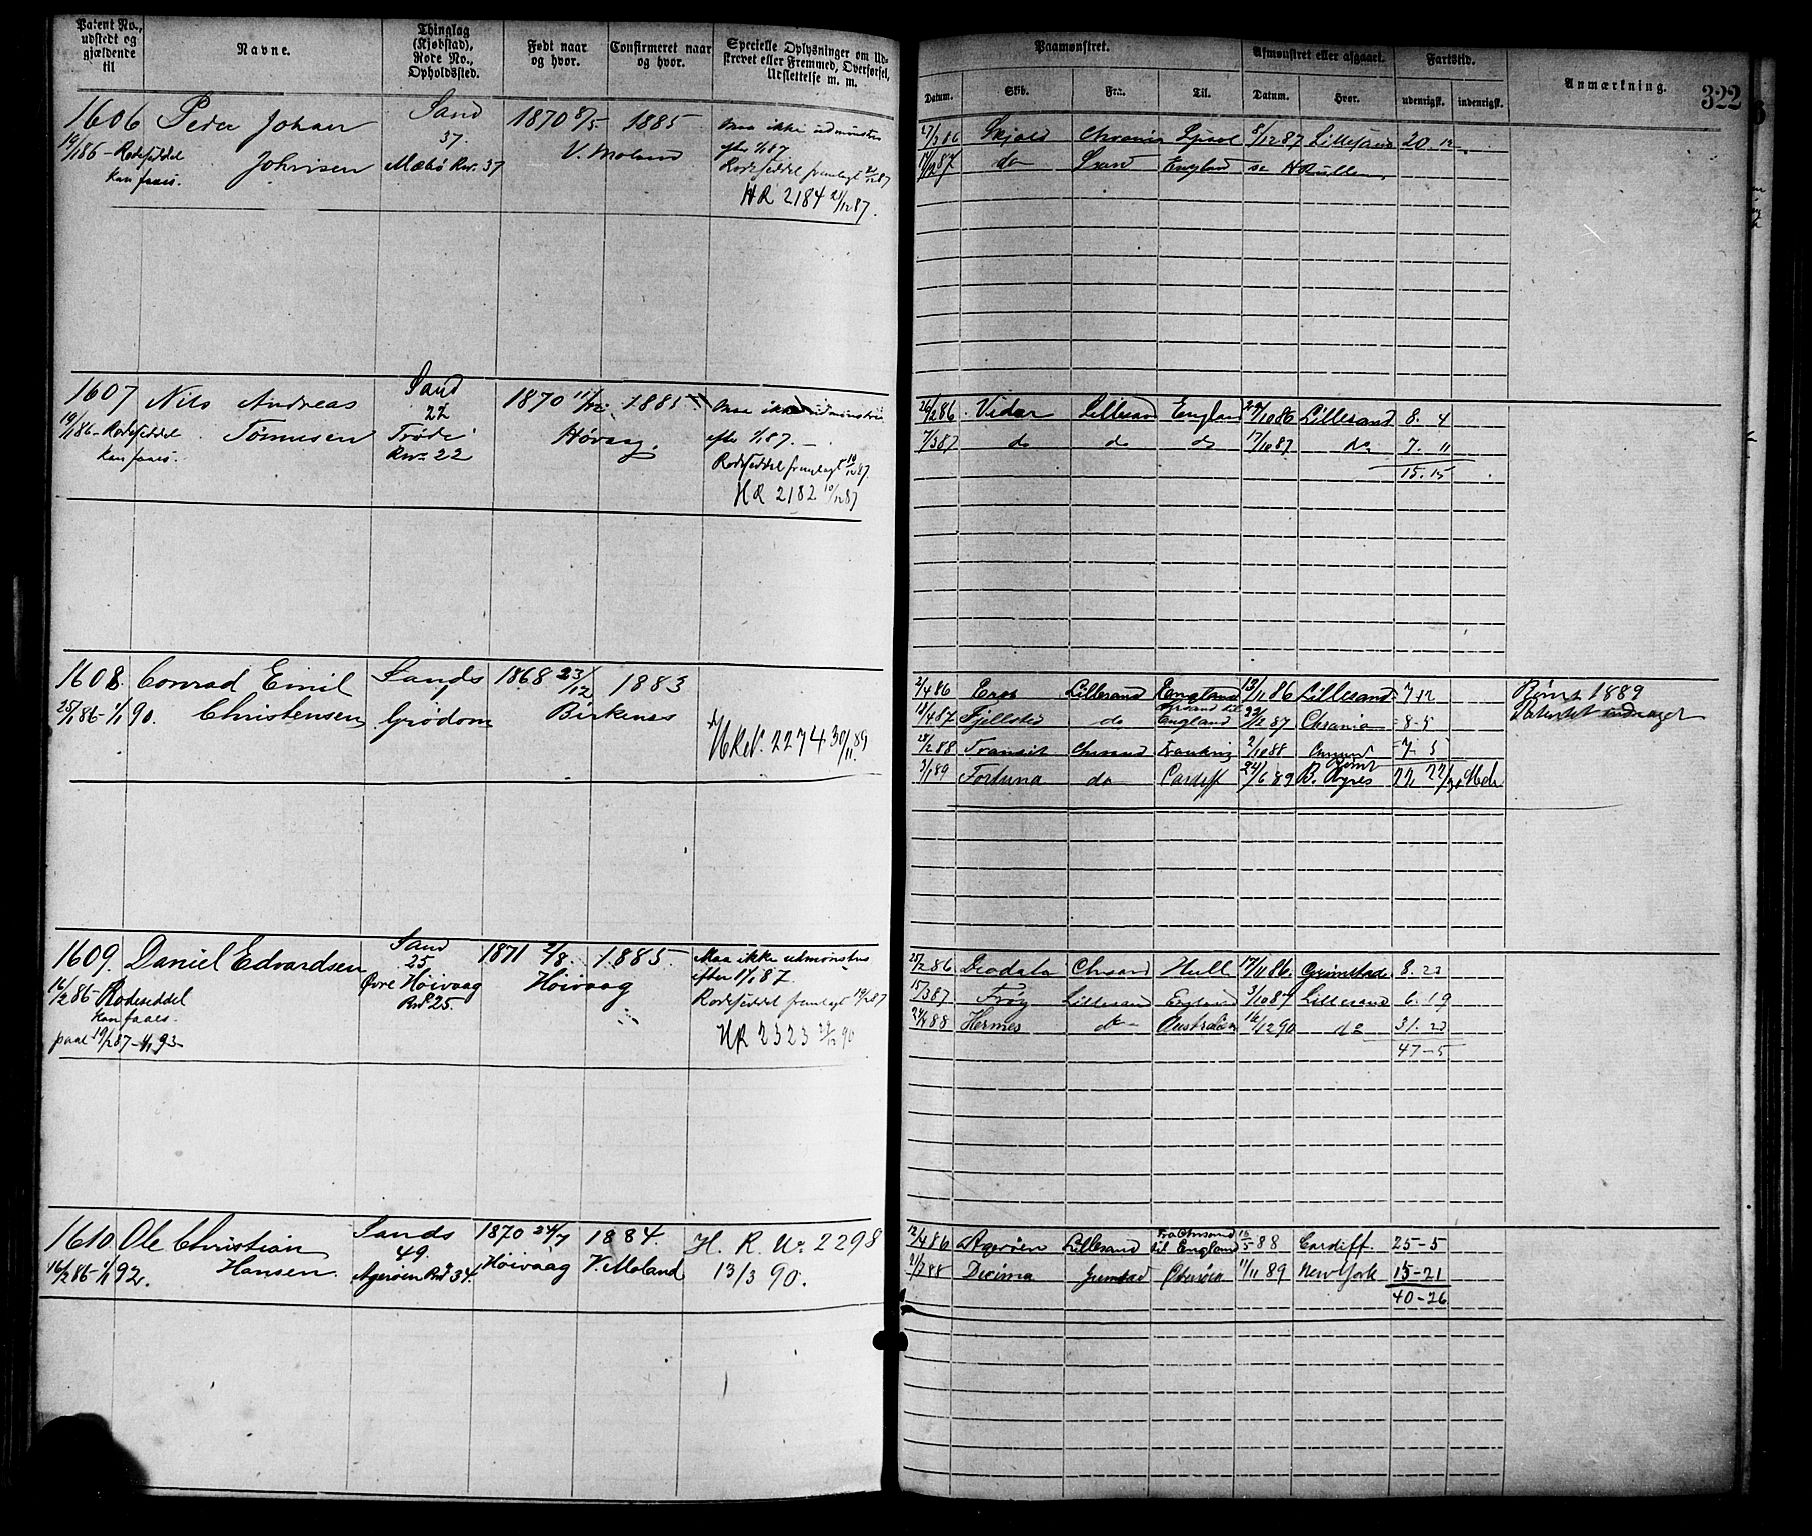 Patent No., udstedt og gjældende til
Navne.
Thinglag (Kjøbstad), Rode No., Opholdssted.
Født naar og hvor.
Confirmeret naar og hvor.
Specielle Oplysninger om Udskrevet eller Fremmed, Overførsel, Udslettelse m. m.
Paamønstret.
Datum.
Skib.
Fra.
Til.
Afmønstret eller afgaaet.
Datum.
Hvor.
Fartstid.
udenrigsk.
indenrigsk.
Anmærkning.
322
1606 Peder Johan Sand 1870 8/5 1885 Maa ikke udmønstres
19/1 86 - Rodeseddel Johnsen 37. V. Moland efter 1/1 87
kan faaes. Mæbø Rnr. 37 Rodeseddel fremlagt 21/12 87
HR 2184 21/12 87.
Skjold 8/12 87 Lillesand 20. 12
do Sand England
1607 Nils Andreas Sand 1870 11/12 1885 Maa ikke udmønstres
19/1 86 - Rodeseddel Tønnesen 22 Høvaag. efter 1/1 87.
kan faaes. Trøde Rnr. 22 Rodeseddel fremlagt 10/12 87.
HR 2182 10/12 87
26/2 86 Vidar Lillesand England 24/10 86 Lillesand 8. 4
7/3 87 do do do 17/10 87 do 7. 11
15. 15
1608. Conrad Emil Sands 1868 23/12 1883
25/1 86 - 1/1 90. Christensen Grødom Birkenes
2274 30/11 89
2/4 86 Lillesand England 13/11 86 Lillesand 7-12 Rømt 1889
11/4 87 Fjellsted do England 22/12 87 Chrania 8-5 Patentet
28/2 88 Transit Chrsand 2/10 88 7-5
3/1 89 Fortuna do Cardiff 24/6 89 B. Ayres
1609. Daniel Edvardsen Sand 1871 2/8 1885. Maa ikke udmønstres
16/2 86 - Rodeseddel 25 Høivaag efter 1/1 87.
kan faaes. Øvre Høivaag Rodeseddel fremlagt 19/2 87
paat. 19/2 87 - 1/1 93 Rnr. 25. HR 2323 29/12 90
25/2 86 Deodata Chrsand Hull 17/11 86. Grimstad 8. 23
15/3 87 Frøy Lillesand England 3/10 87 Lillesand 6. 19
Hermes do Australien 16/12 90 do 31. 23
47-5
1610, Ole Christian Sands 1870 24/7 1884. H. R. Nr. 2298
16/2 86 - 1/1 92. Hansen. 49. Høivaag V. Moland 13/3 90.
Agerøen Rnr 34.
12/4 86 Agerøen Lillesand Fra Chrsand til England 10/5 88 Cardiff. 25-5
Decima Grimstad 11/11 89 New York 15-21
40-26